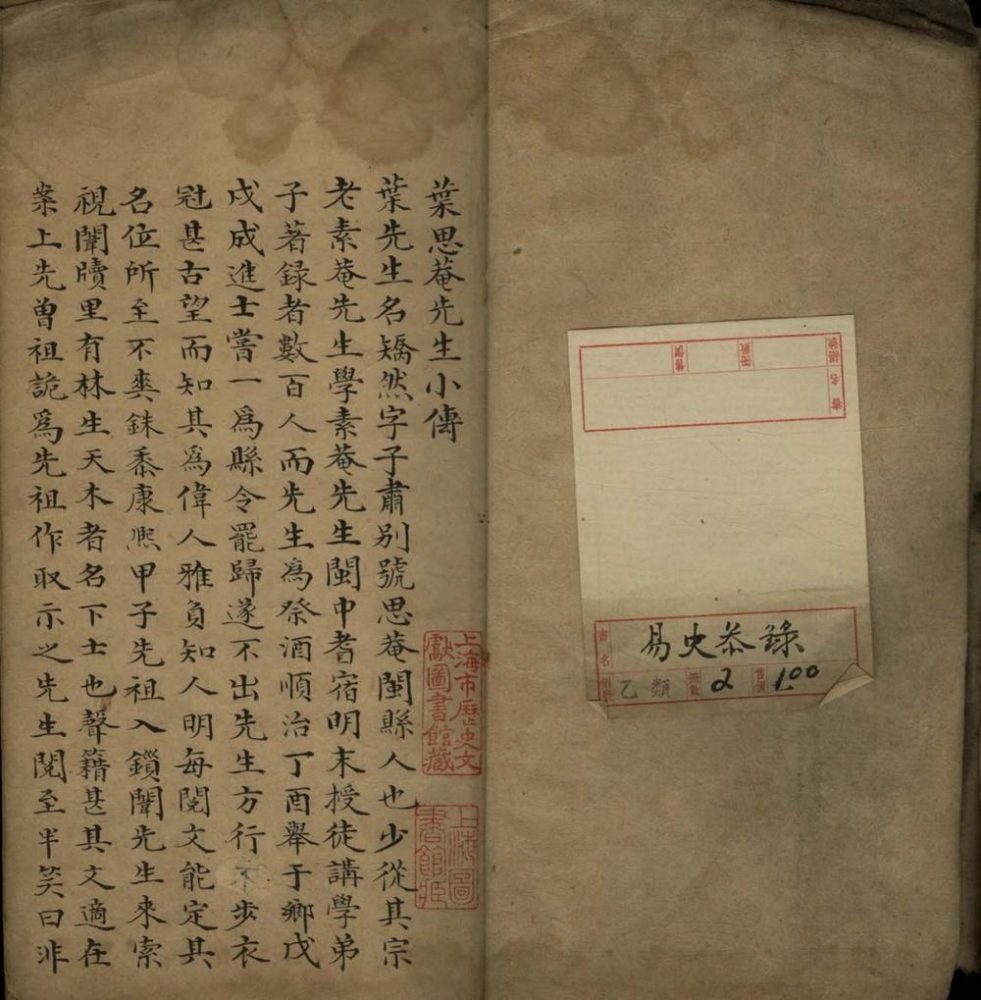 編號
書名
冊數
售價
書名
易史叅錄
乙類
冊數
2
售價
1.00
上海市歷史文
獻圖書館藏
上海圖
書館藏
葉思菴先生小傳
葉先生名矯然字子肅别號思菴閩縣人也少從其宗
老素菴先生學素菴先生閩中耆宿明末授徒講學弟
子著録者數百人而先生爲祭酒順治丁酉舉于鄉戊
戌成進士嘗一爲縣令罷歸遂不出先生方行步衣
冠甚古望而知其爲偉人雅負知人明每閱文能定其
名位所至不爽銖黍康熙甲子先祖入鎖闈先生來索
視闈牘里有林生天木者名下士也聲籍甚其文適在
案上先曾祖詭爲先祖作取示之先生閱至半笑曰非